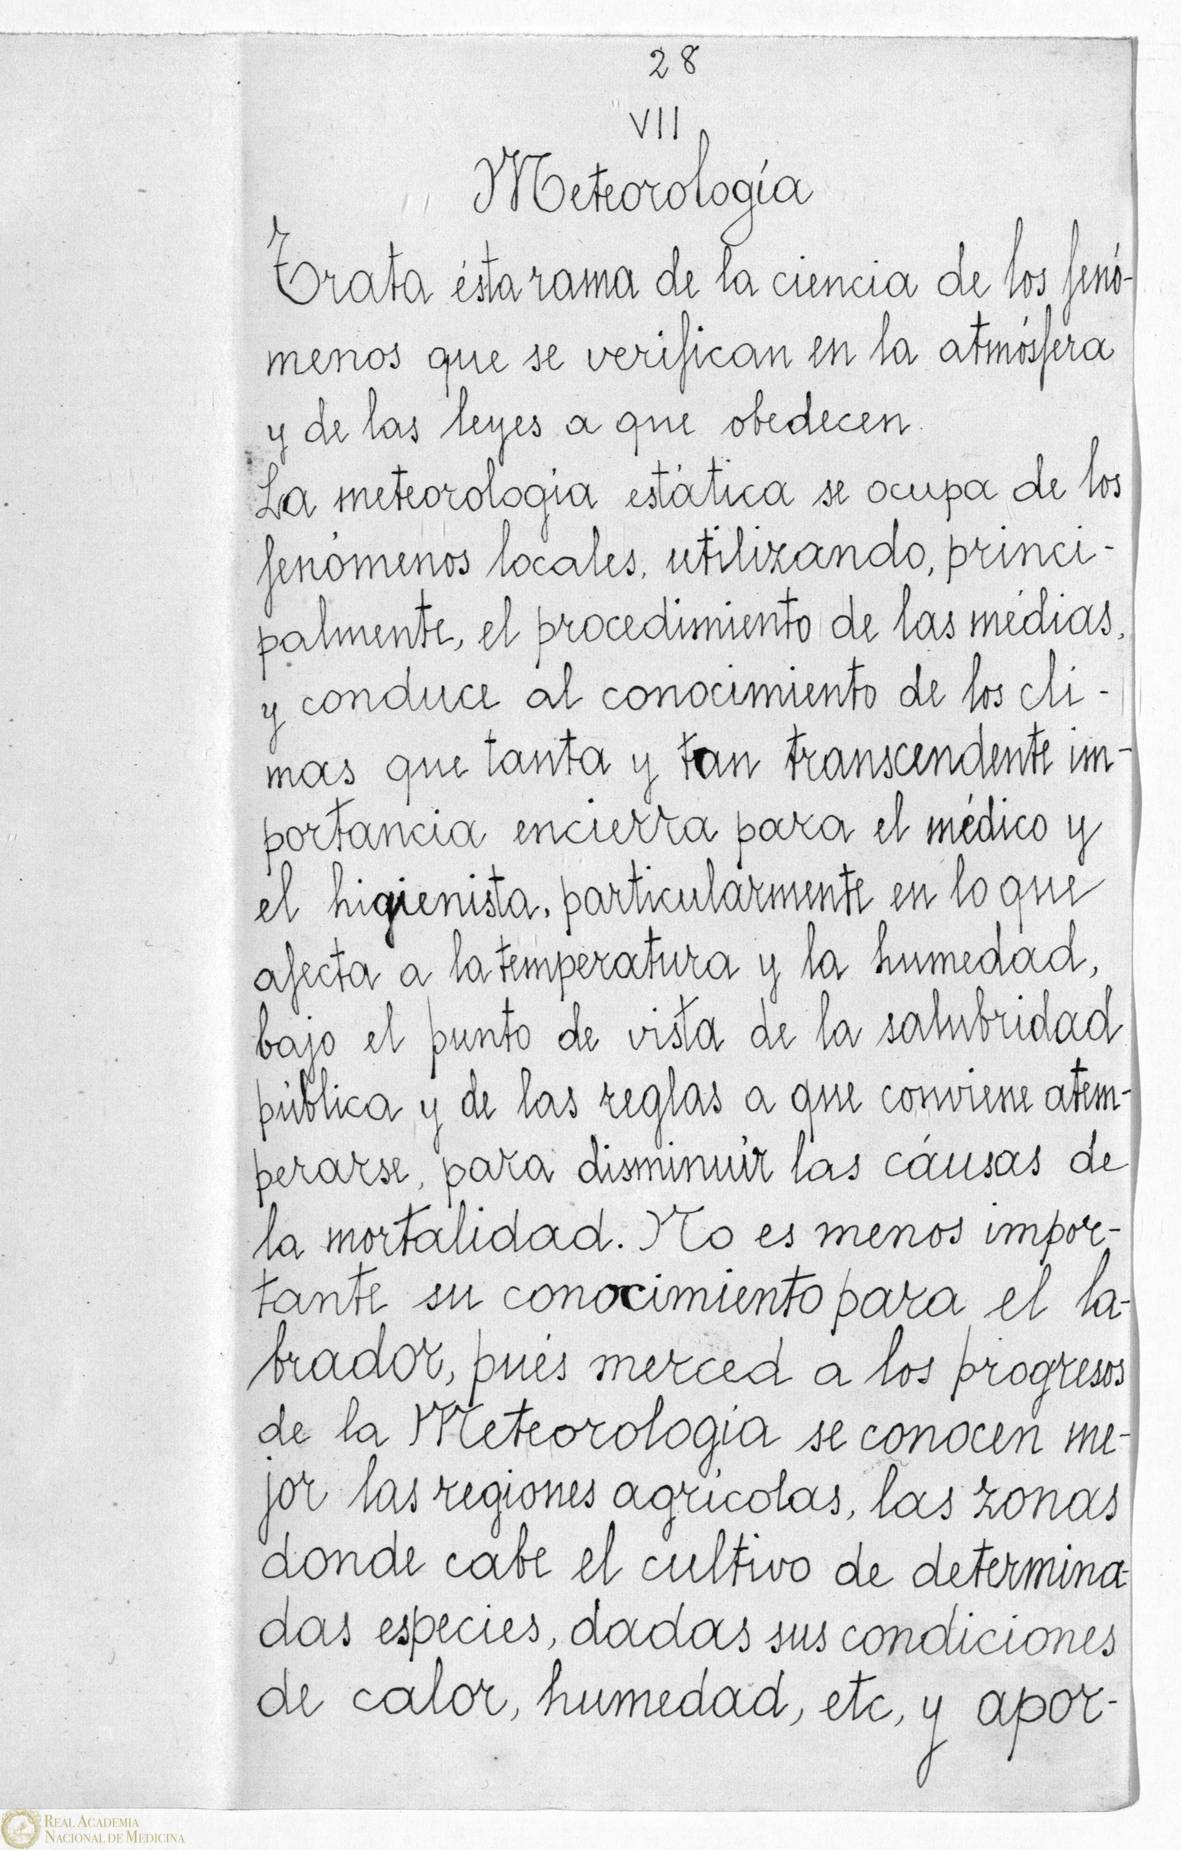 28
VII
Meteorología
Trata ésta rama de la ciencia de los fenó-
menos que se verifican en la atmósfera
y de las leyes a que obedecen.
La meteorología estática se ocupa de los
fenómenos locales, utilizando, princi-
palmente, el procedimiento de las médias,
y conduce al conocimiento de los cli-
mas que tanta y tan transcendente im-
portancia encierra para el médico y
el higienista, particularmente en lo que
afecta a la temperatura y la humedad,
bajo el punto de vista de la salubridad
pública y de las reglas a que conviene atem-
perarse, para disminuír las cáusas de
la mortalidad. No es menos impor-
tante su conocimiento para el la-
brador, pués merced a los progresos
de la Meteorología se conocen me-
jor las regiones agrícolas, las zonas
donde cabe el cultivo de determina-
das especies, dadas sus condiciones
de calor, humedad, etc, y apor-
REAL ACADEMIA
NACIONAL DE MEDICINA